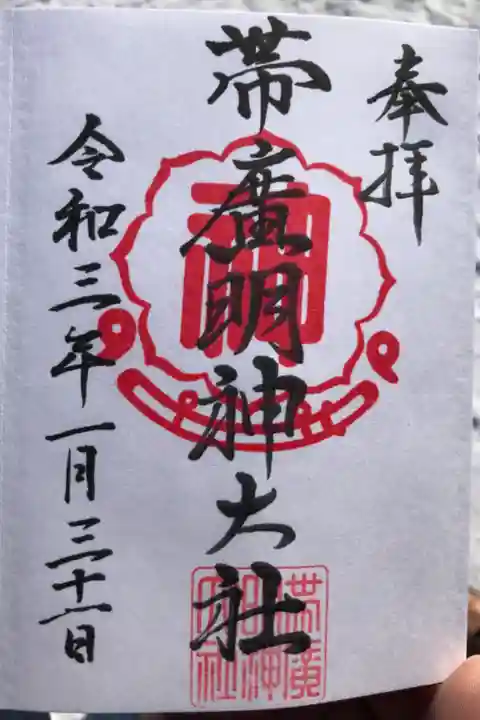 奉拝
帯廣明神大社
令和三年一月三十一日
帯廣
明神
大社